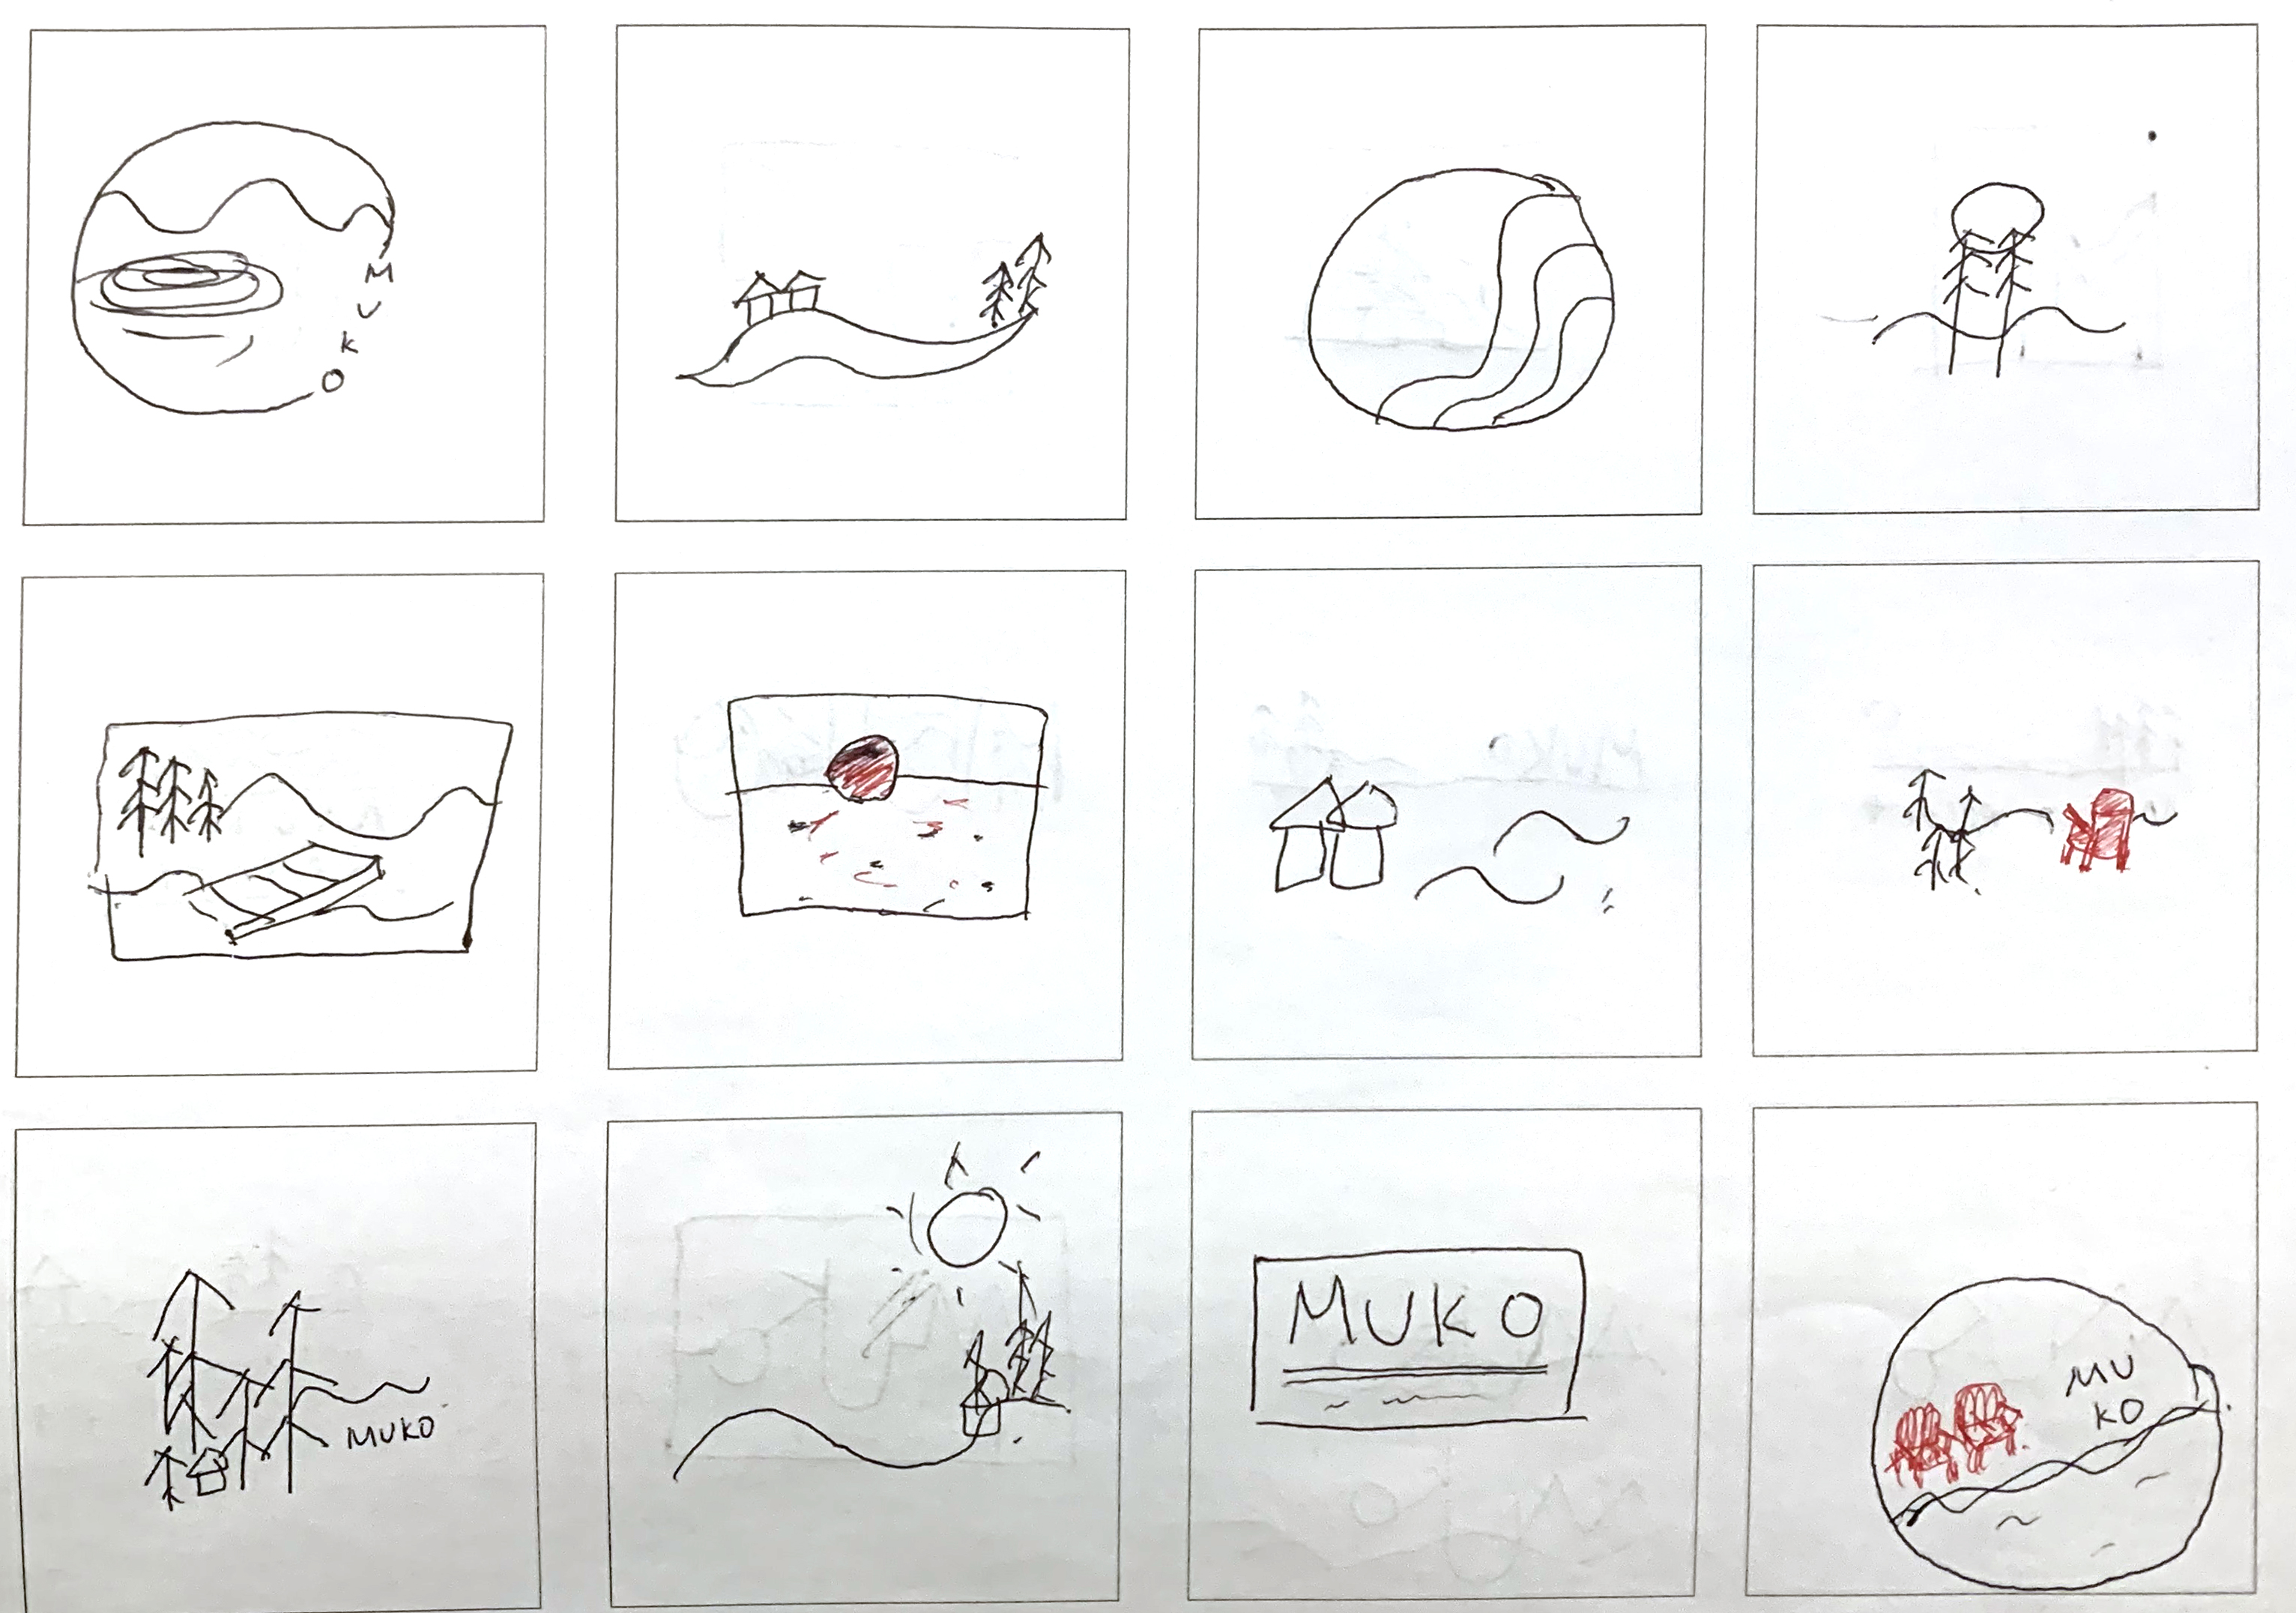 M
U
K
O
MUKO
MUKO
MU
KO